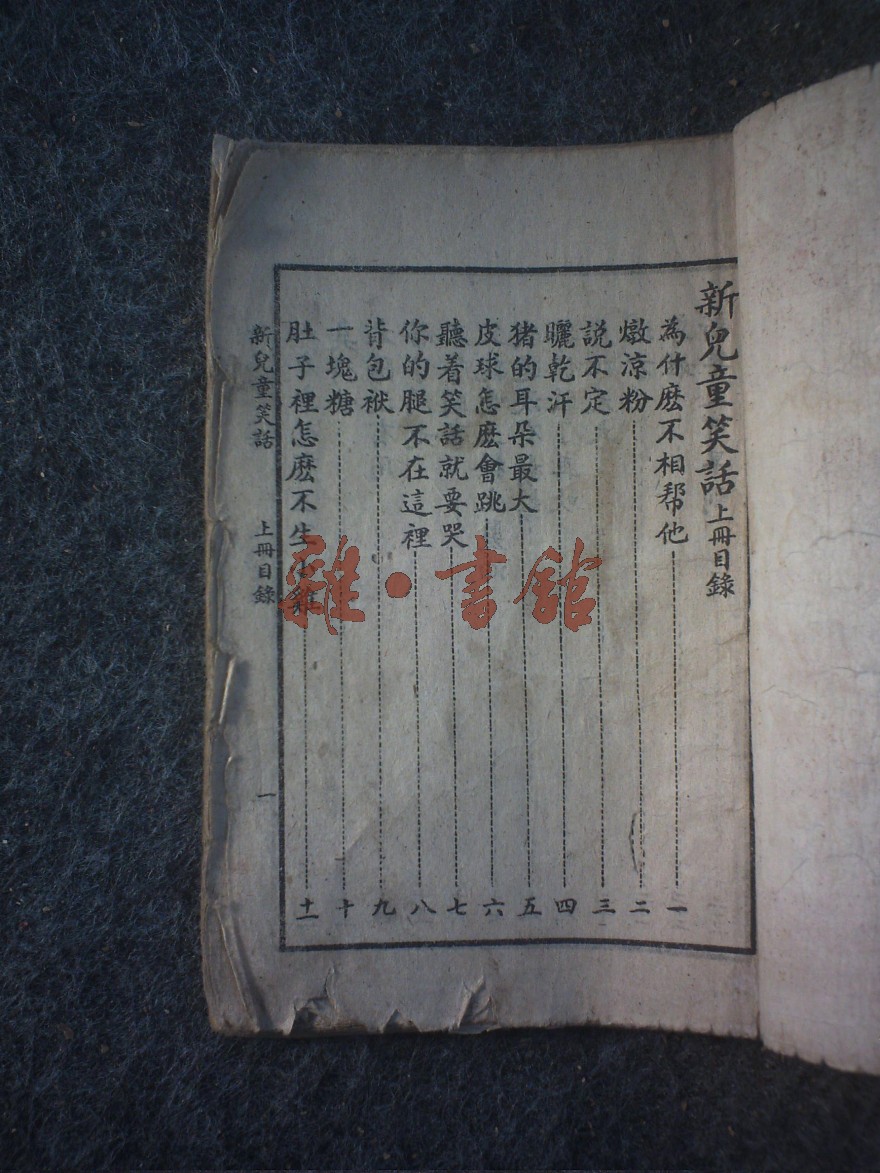 新兒童笑話上冊目錄
為什麽不相帮他 一
燉凉粉 二
説不定 三
曬乾汗 四
猪的耳朵最大 五
皮球怎麽會跳 六
聽着笑話就要哭 七
你的腿不在這裡 八
背包袱 九
一塊糖 十
肚子裡怎麽不生小雞 十一
新兒童笑話 上冊目錄 一
雜·書館